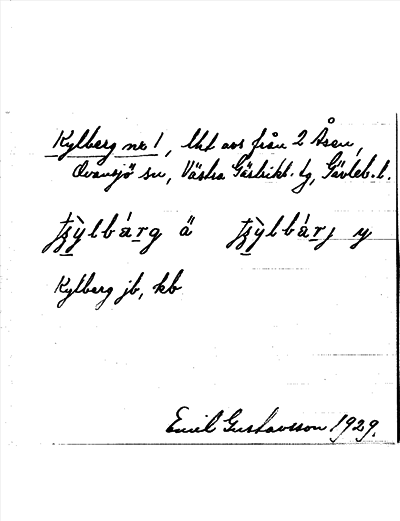 Kylberg nr 1, lht avs från 2 Åsen,
Ovansjö sn, Västra Gästrikl. tg, Gävleb. l.
tʂỳlbárg ä tʂỳlbárj y
Kylberg jb, kb
Emil Gustavsson 1929.